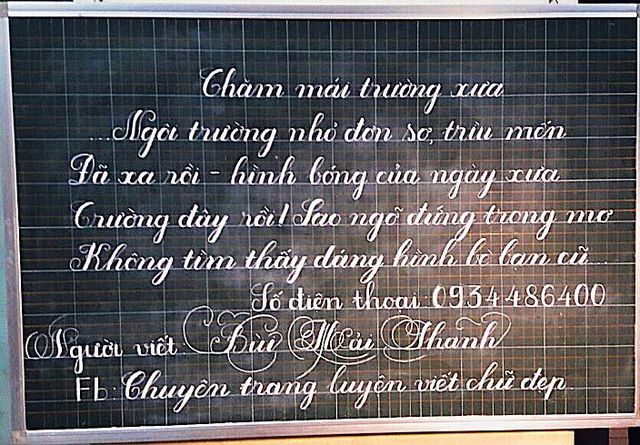 Thăm mái trường xưa
...Ngôi trường nhỏ đơn sơ, trìu mến
Đã xa rồi - hình bóng của ngày xưa
Trường đây rồi! Sao ngỡ đứng trong mơ
Không tìm thấy dáng hình bè bạn cũ...
Số điện thoại: 0934486400
Người viết: Bùi Hải Thanh
Fb: Chuyên trang luyện viết chữ đẹp.